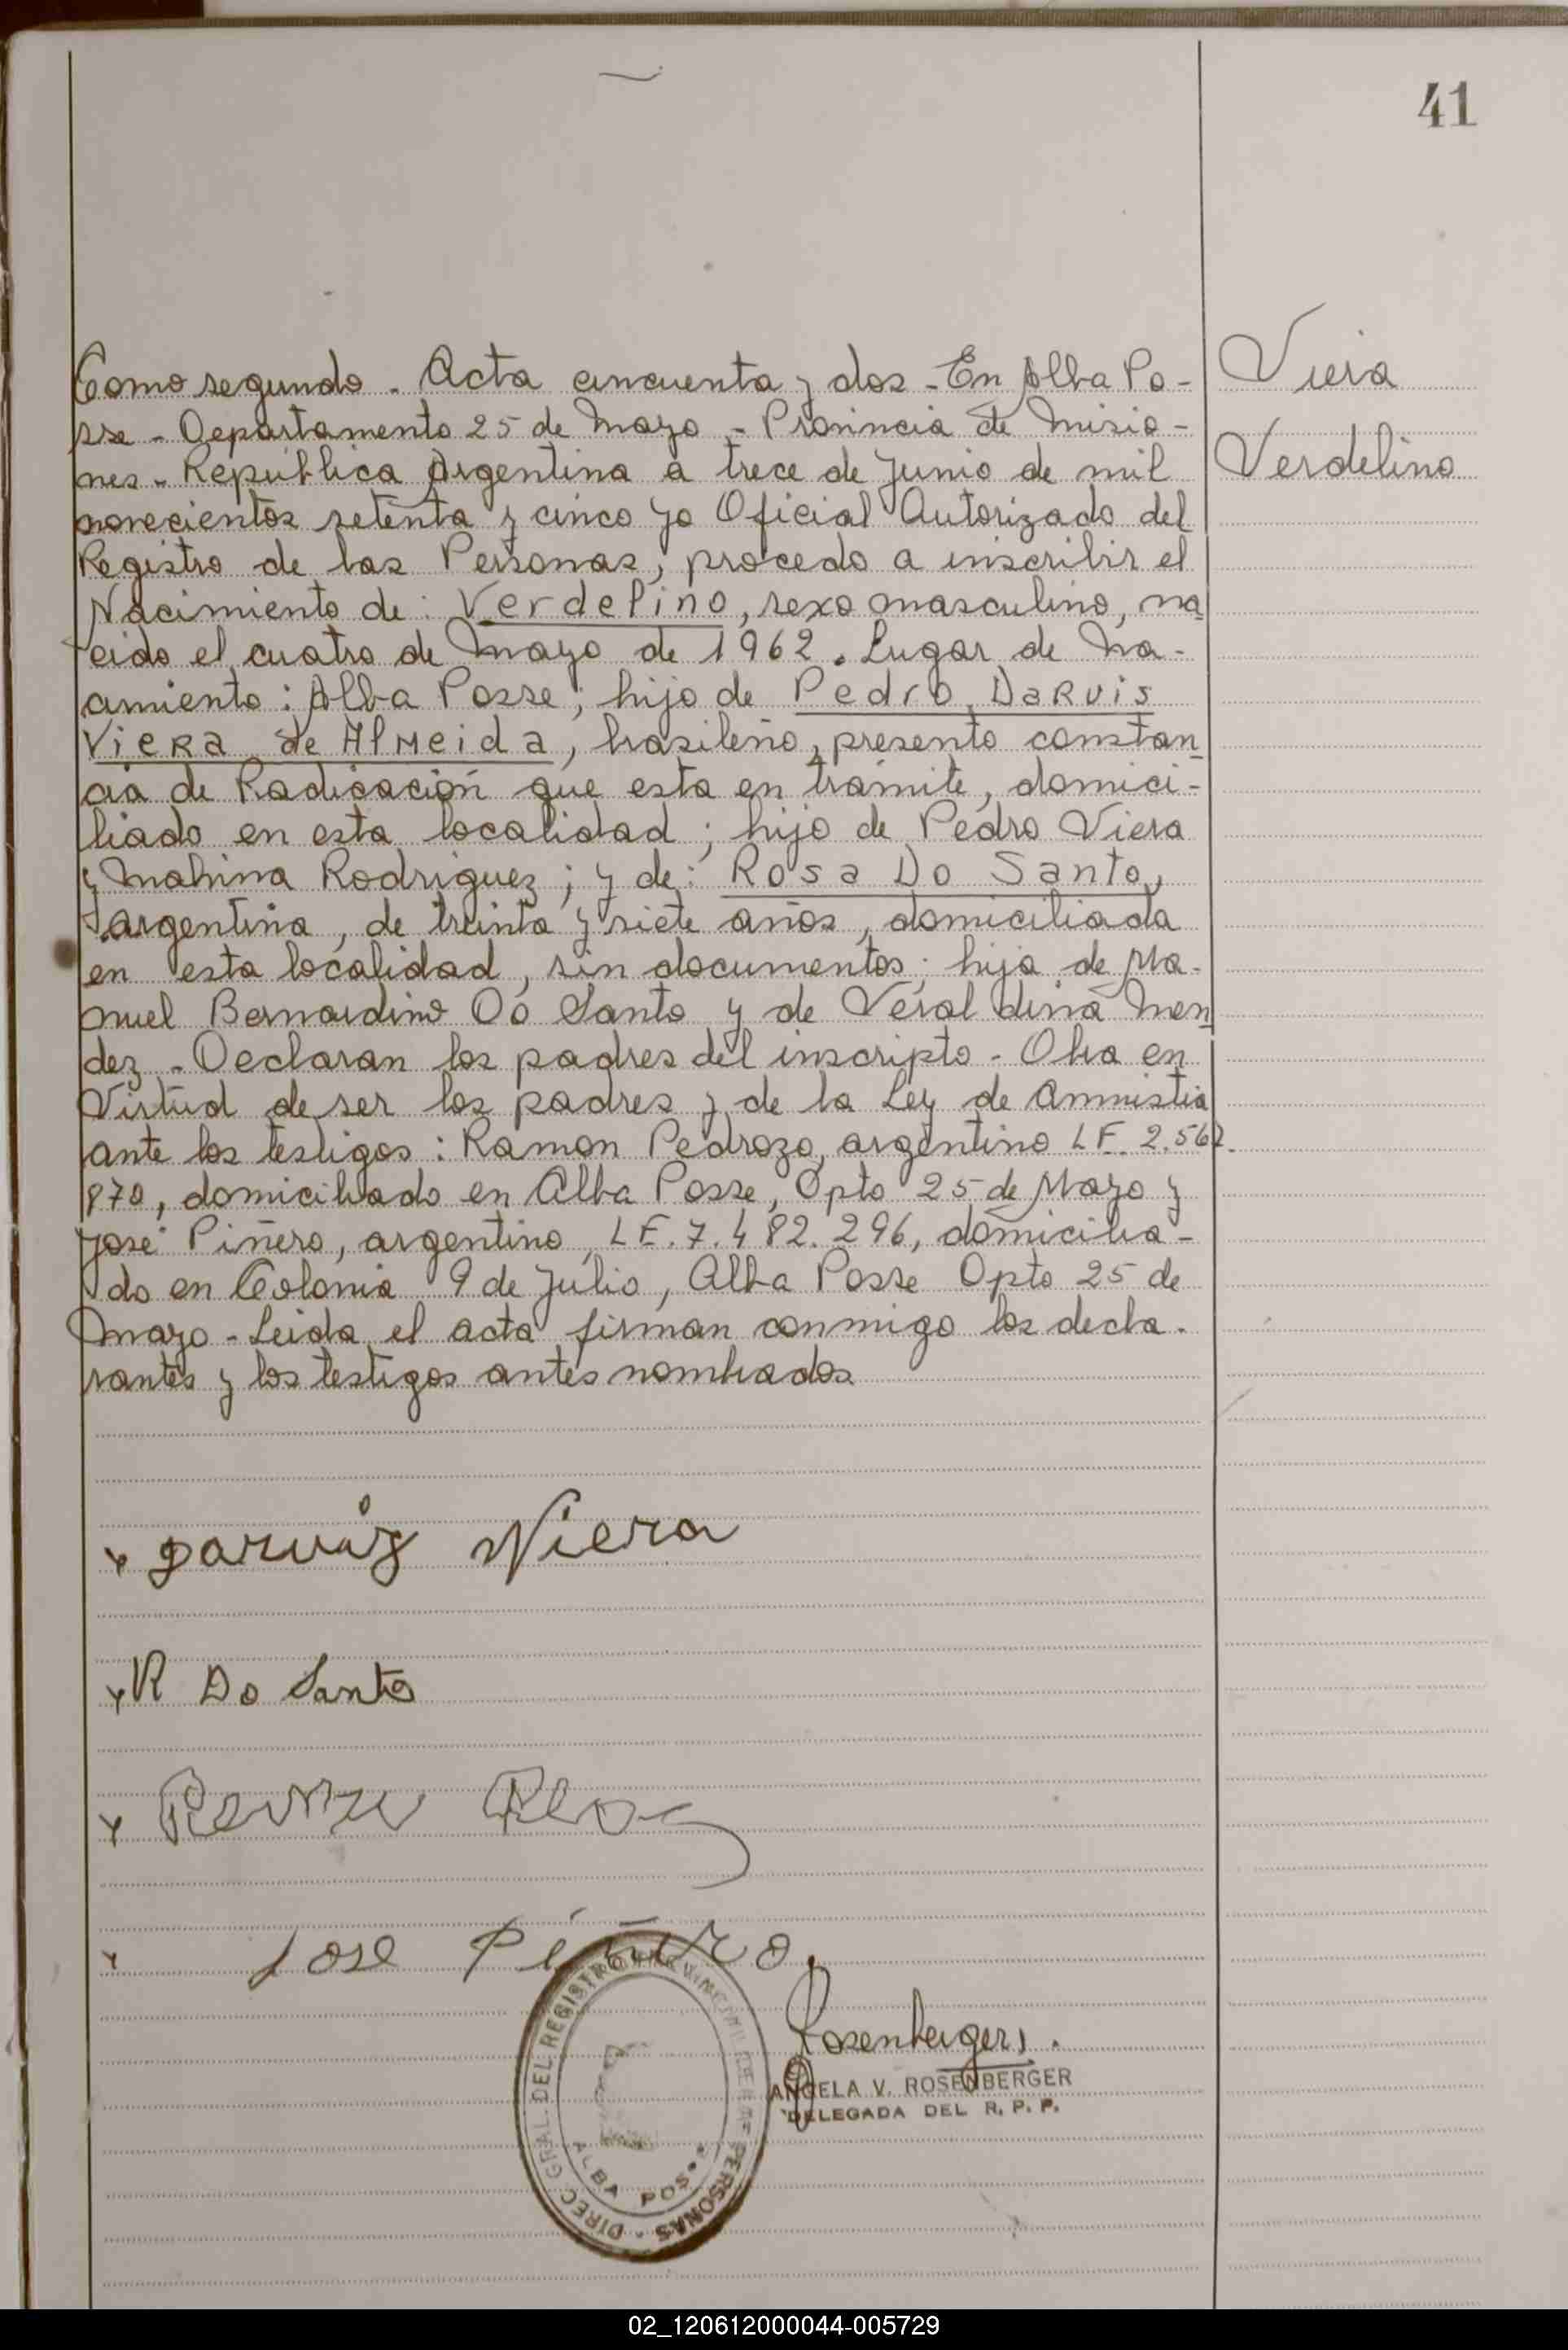 41
Viera
Verdelino
Como segundo - Acta cincuenta y dos - En Alba Po-
sse - Departamento 25 de Mayo - Provincia de Misio-
nes - República Argentina a trece de Junio de mil
novecientos setenta y cinco yo Oficial Autorizado del
Registro de las Personas, procedo a inscribir el
Nacimiento de: Verdelino, sexo masculino, na
cido el cuatro de Mayo de 1962. Lugar de Na-
cimiento: Alba Posse; hijo de Pedro Darvis
Viera de Almeida, brasileño, presento constan
cia de Radicación que esta en trámite, domici-
liado en esta localidad; hijo de Pedro Viera
y Mahina Rodriguez; y de: Rosa Do Santo,
argentina, de treinta y siete años, domiciliada
en esta localidad, sin documentos; hija de Ma-
nuel Bernardino Do Santo y de Veraldina Men
dez - Declaran los padres del inscripto - Obra en
Virtud de ser los padres y de la Ley de Amnistia
ante los testigos: Ramon Pedrozo, argentino LE. 2.562.
870, domiciliado en Alba Posse, Dpto 25 de Mayo y
José Piñero, argentino, LE. 7.482.296, domicilia-
do en Colonia 9 de Julio, Alba Posse Dpto 25 de
Mayo - Leida el acta firman conmigo los decla-
rantes y los testigos antes nombrados
Darviz Viera
R Do Santo
Jose Piñero
Rosenberger
ANGELA V. ROSENBERGER
DELEGADA DEL R. P. P.
DIREC. GRAL. DEL REGISTRO PROVINCIAL DE LAS PERSONAS
ALBA POSSE
02_120612000044-005729